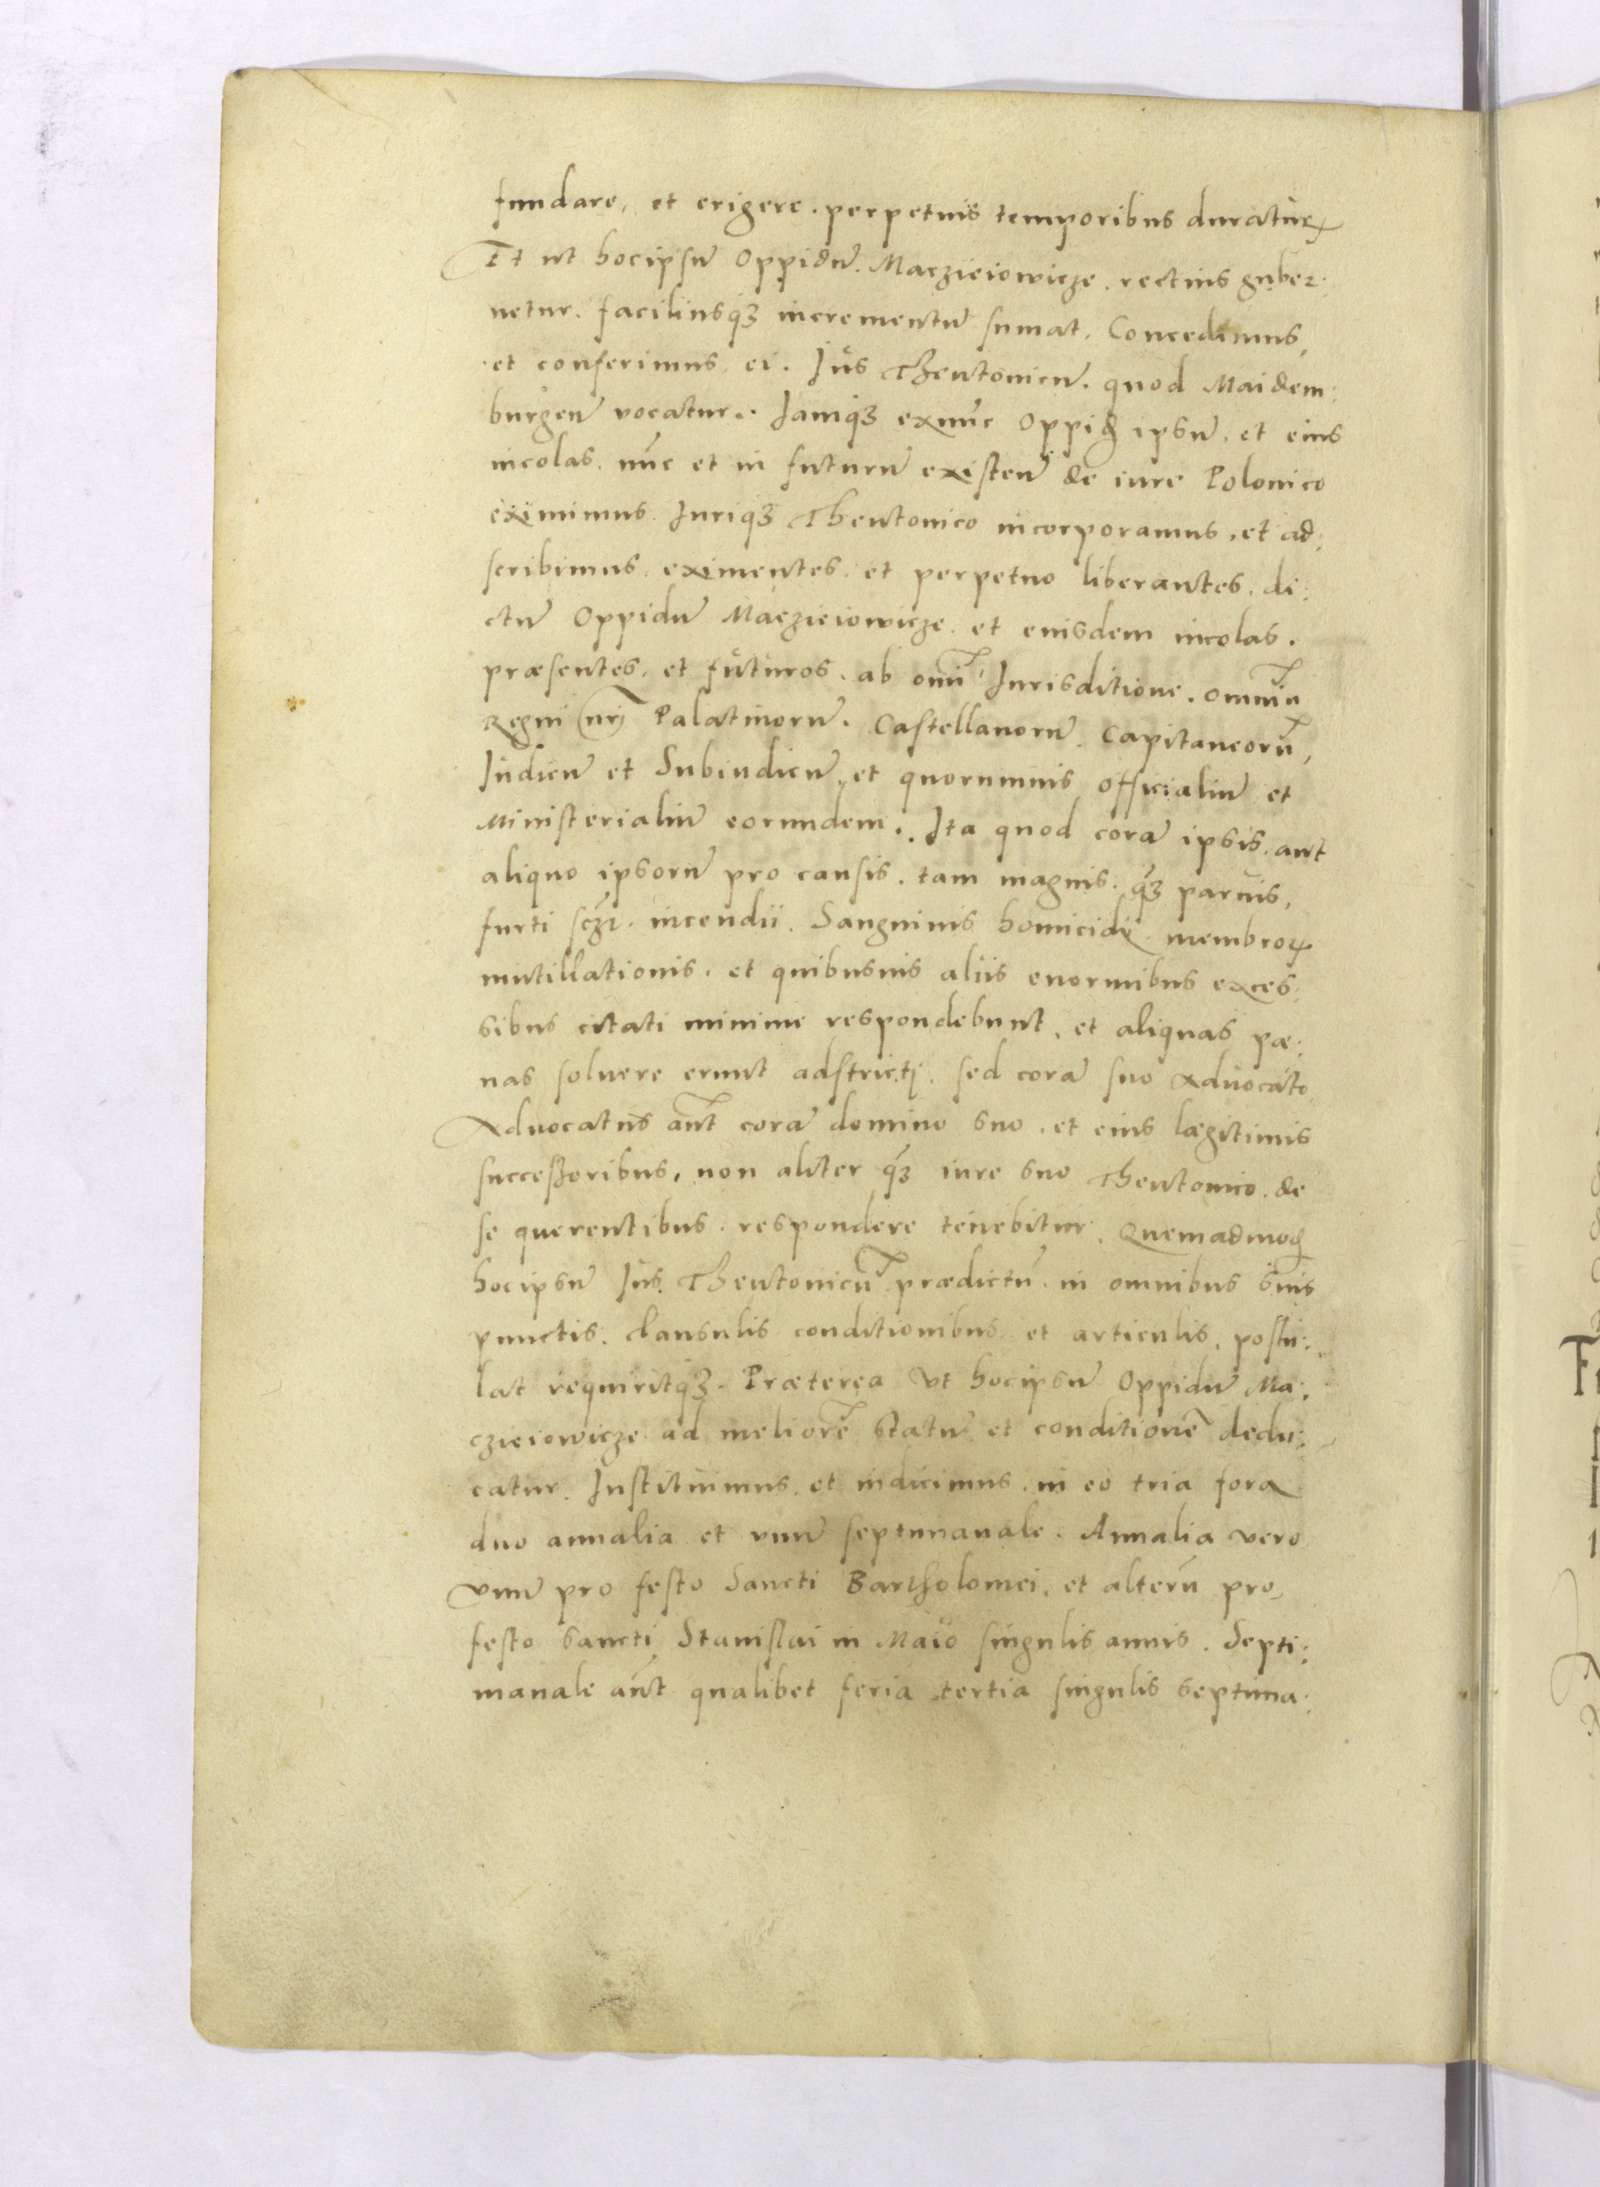 fundare, et erigere. perpetuis temporibus duraturꝝ
Et ut hocipsũ Oppidũ. Maczieiowicze. rectius guber:
netur. faciliusqꝫ incrementũ sumat. Concedimus,
et conferimus ei. Iůs Theutonicũ. quod Maidem:
burgeñ vocatur. Iamqꝫ exnũc Oppid ipsũ. et eius
incolas. nũc et in futurũ existeñ de iure Polonico
eximimus. Iuriqꝫ Theutonico incorporamus, et ad:
scribimus. eximentes. et perpetuo liberantes. di:
ctũ Oppidũ Maczieiowicze. et eiusdem incolas.
præsentes. et fůturos. ab om̃i Iurisditione. omniũ
Regni nr̃i Palatinorũ. Castellanorũ. Capitaneorũ,
Iudicũ et Subiudicũ, et quorumuis officialiũ et
Ministerialiũ eorundem. Ita quod corã ipsis. aut
aliquo ipsorũ pro causis. tam magnis. qꝫ paruis,
furti scꝫ. incendii. Sanguinis homicidii. membroꝝ
mutillationis. et quibusuis aliis enormibus exces:
sibus citati minime respondebunt. et aliquas pæ:
nas soluere erunt adstricti. sed corã suo Aduocato
Aduocatus aũt corã domino suo. et eius lægitimis
successoribus, non aliter qꝫ iure suo Theutonico. de
se querentibus. respondere tenebitur. Quemadmod
hocipsũ Iůs. Theutonicũ prædictũ. in omnibus suis
punctis. clausulis conditionibus et articulis. postu:
lat requiritqꝫ. Præterea Vt hocipsũ Oppidũ Ma:
czieiowicze ad meliorẽ statũ et conditionẽ dedu:
catur. Instituimus. et indicimus. in eo tria fora
duo annalia et vnũ septimanale. Annalia vero
Vnũ pro festo Sancti Bartholomei. et alterũ pro
festo Sancti Stanislai in Maio singulis annis. Septi:
manale aũt qualibet feria tertia singulis septima: